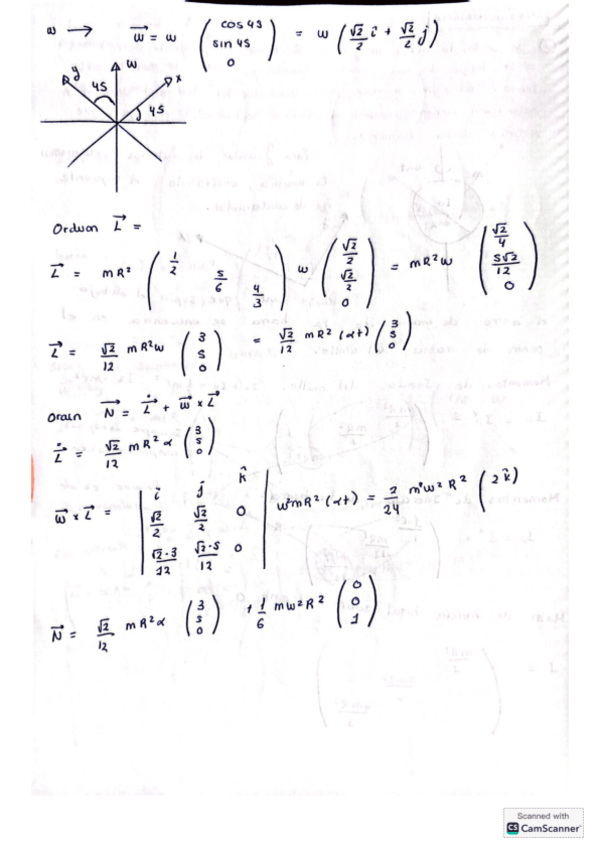 ω → \vec{ω} = ω \begin{pmatrix} cos 45 \\ sin 45 \\ 0 \end{pmatrix} = ω ( \frac{√2}{2} \hat{i} + \frac{√2}{2} \hat{j} )
y ω x
45 45
Orduan \vec{L} =
\vec{L} = mR² \begin{pmatrix} \frac{1}{2} & & \\ & \frac{5}{6} & \\ & & \frac{4}{3} \end{pmatrix} ω \begin{pmatrix} \frac{√2}{2} \\ \frac{√2}{2} \\ 0 \end{pmatrix} = mR²ω \begin{pmatrix} \frac{√2}{4} \\ \frac{5√2}{12} \\ 0 \end{pmatrix}
\vec{L} = \frac{√2}{12} mR²ω \begin{pmatrix} 3 \\ 5 \\ 0 \end{pmatrix} = \frac{√2}{12} mR² (αt) \begin{pmatrix} 3 \\ 5 \\ 0 \end{pmatrix}
Orain \vec{N} = \dot{\vec{L}} + \vec{ω} × \vec{L}
\dot{\vec{L}} = \frac{√2}{12} mR²α \begin{pmatrix} 3 \\ 5 \\ 0 \end{pmatrix}
\vec{ω} × \vec{L} = \begin{vmatrix} \hat{i} & \hat{j} & \hat{k} \\ \frac{√2}{2} & \frac{√2}{2} & 0 \\ \frac{√2·3}{12} & \frac{√2·5}{12} & 0 \end{vmatrix} ω²mR²·(αt) = \frac{2}{24} mω²R² ( 2\hat{k} )
\vec{N} = \frac{√2}{12} mR²α \begin{pmatrix} 3 \\ 5 \\ 0 \end{pmatrix} + \frac{1}{6} mω²R² \begin{pmatrix} 0 \\ 0 \\ 1 \end{pmatrix}
Scanned with
CS CamScanner